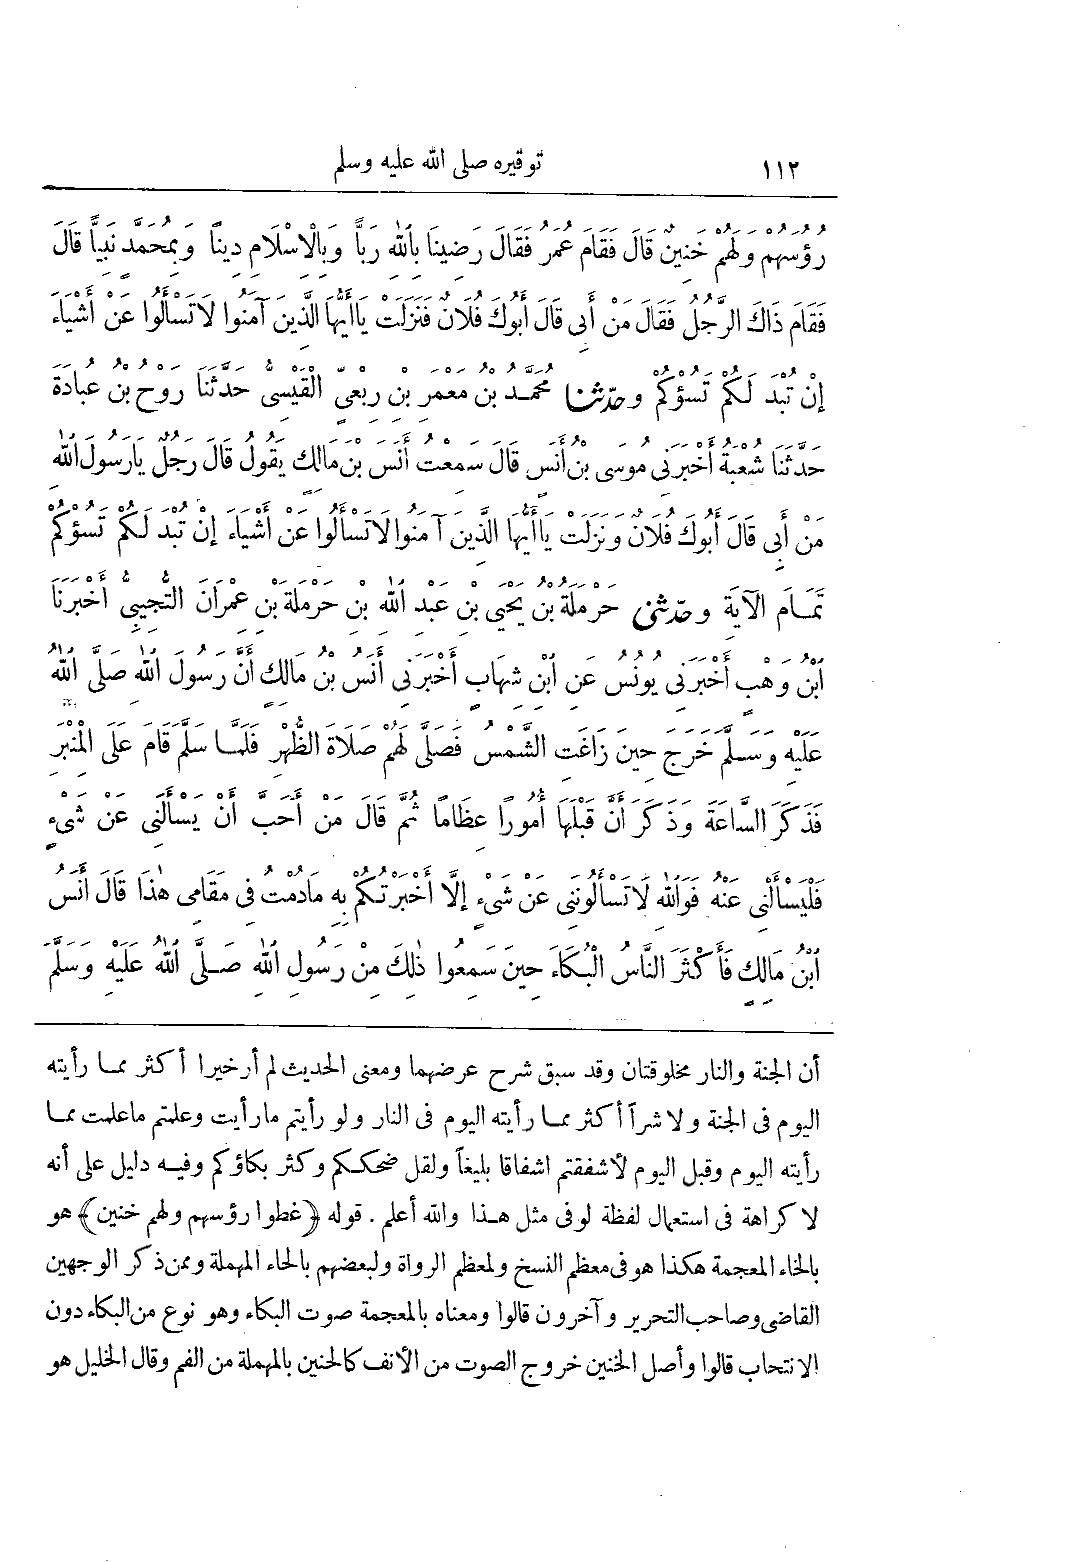 ١١٢ توقيره صلى الله عليه وسلم
رُؤُسَهُمْ وَلَهُمْ خَنِينٌ قَالَ فَقَامَ عُمَرُ فَقَالَ رَضِينَا بِاللهِ رَبًّا وَبِالْإِسْلَامِ دِينًا وَبِمُحَمَّدٍ نَبِيًّا قَالَ
فَقَامَ ذَاكَ الرَّجُلُ فَقَالَ مَنْ أَبِى قَالَ أَبُوكَ فُلَانٌ فَنَزَلَتْ يَاأَيُّهَا الَّذِينَ آمَنُوا لَا تَسْأَلُوا عَنْ أَشْيَاءَ
إِنْ تُبْدَ لَكُمْ تَسُؤْكُمْ وحدّثنا مُحَمَّدُ بْنُ مَعْمَرِ بْنِ رِبْعِىٍّ الْقَيْسِىُّ حَدَّثَنَا رَوْحُ بْنُ عُبَادَةَ
حَدَّثَنَا شُعْبَةُ أَخْبَرَنِى مُوسَى بْنُ أَنَسٍ قَالَ سَمِعْتُ أَنَسَ بْنَ مَالِكٍ يَقُولُ قَالَ رَجُلٌ يَارَسُولَ اللهِ
مَنْ أَبِى قَالَ أَبُوكَ فُلَانٌ وَنَزَلَتْ يَاأَيُّهَا الَّذِينَ آمَنُوا لَا تَسْأَلُوا عَنْ أَشْيَاءَ إِنْ تُبْدَ لَكُمْ تَسُؤْكُمْ
تَمَامَ الْآيَةِ وحدّثنى حَرْمَلَةُ بْنُ يَحْيَى بْنِ عَبْدِ اللهِ بْنِ حَرْمَلَةَ بْنِ عِمْرَانَ التُّجِيبِىُّ أَخْبَرَنَا
ابْنُ وَهْبٍ أَخْبَرَنِى يُونُسُ عَنِ ابْنِ شِهَابٍ أَخْبَرَنِى أَنَسُ بْنُ مَالِكٍ أَنَّ رَسُولَ اللهِ صَلَّى اللهُ
عَلَيْهِ وَسَلَّمَ خَرَجَ حِينَ زَاغَتِ الشَّمْسُ فَصَلَّى لَهُمْ صَلَاةَ الظُّهْرِ فَلَمَّا سَلَّمَ قَامَ عَلَى الْمِنْبَرِ
فَذَكَرَ السَّاعَةَ وَذَكَرَ أَنَّ قَبْلَهَا أُمُورًا عِظَامًا ثُمَّ قَالَ مَنْ أَحَبَّ أَنْ يَسْأَلَنِى عَنْ شَىْءٍ
فَلْيَسْأَلْنِى عَنْهُ فَوَاللهِ لَا تَسْأَلُونَنِى عَنْ شَىْءٍ إِلَّا أَخْبَرْتُكُمْ بِهِ مَادُمْتُ فِى مَقَامِى هٰذَا قَالَ أَنَسُ
ابْنُ مَالِكٍ فَأَكْثَرَ النَّاسُ الْبُكَاءَ حِينَ سَمِعُوا ذٰلِكَ مِنْ رَسُولِ اللهِ صَلَّى اللهُ عَلَيْهِ وَسَلَّمَ
أن الجنة والنار مخلوقتان وقد سبق شرح عرضهما ومعنى الحديث لم أرخيرا أكثر مما رأيته
اليوم فى الجنة ولا شراً أكثر مما رأيته اليوم فى النار ولو رأيتم مارأيت وعلمتم ماعلمت مما
رأيته اليوم وقبل اليوم لأشفقتم اشفاقا بليغاً ولقل ضحككم وكثر بكاؤكم وفيه دليل على أنه
لا كراهة فى استعمال لفظة لو فى مثل هذا والله أعلم . قوله ﴿غطوا رؤسهم ولهم خنين﴾ هو
بالخاء المعجمة هكذا هو فى معظم النسخ ولمعظم الرواة ولبعضهم بالحاء المهملة وممن ذكر الوجهين
القاضى وصاحب التحرير وآخرون قالوا ومعناه بالمعجمة صوت البكاء وهو نوع من البكاء دون
الانتحاب قالوا وأصل الخنين خروج الصوت من الأنف كالحنين بالمهملة من الفم وقال الخليل هو